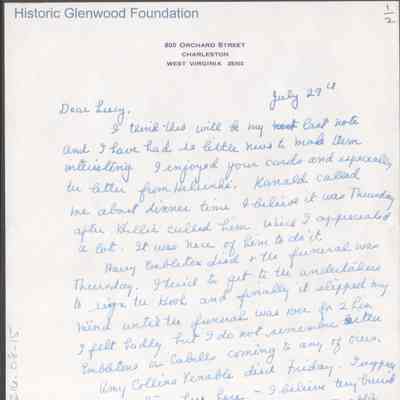 Historic Glenwood Foundation
1/2
800 ORCHARD STREET
CHARLESTON
WEST VIRGINIA
July 29
Dear Lucy,
I think this will be my last note
and I have had so little news to make them
interesting I enjoyed your cards and especially
the letter from Helsinki. Kanald called
me about dinner time I believe it was Thursday
after called him which I appreciated
a lot. It was nice of him to do it.
Harry Embleton died & the funeral was
Thursday. I tried to get to the undertakers
to sign the book and finally it slipped my
mind until the funeral was over for 2 hrs
I felt badly but I do not remember either
Embletons or Cabells coming to any of ours.
Amy Collins Venable died Friday. I
I believe they